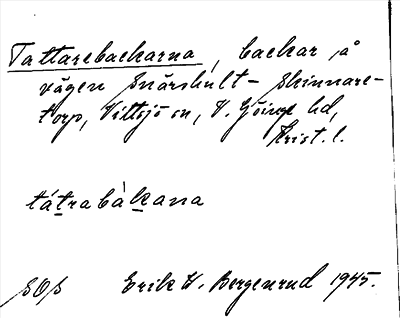 Tattarebackarna, backar å
vägen Snärshult - Skinnare-
torp, Vittsjö sn, V. Göinge hd,
Krist. l.
tátrabàkana
SOS Erik W. Bergenrud 1945.